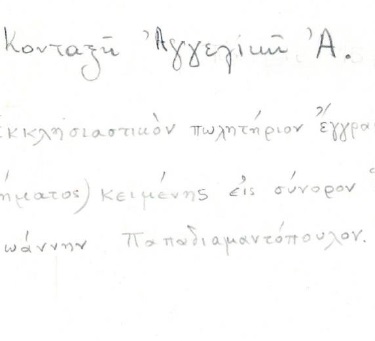 Κονταξῆ Ἀγγελικὴ Ἀ.
ἐκκλησιαστικὸν πωλητήριον ἔγγρα
ήματος) κειμένης εἰς σύνορον
ωάννην Παπαδιαμαντόπουλον.